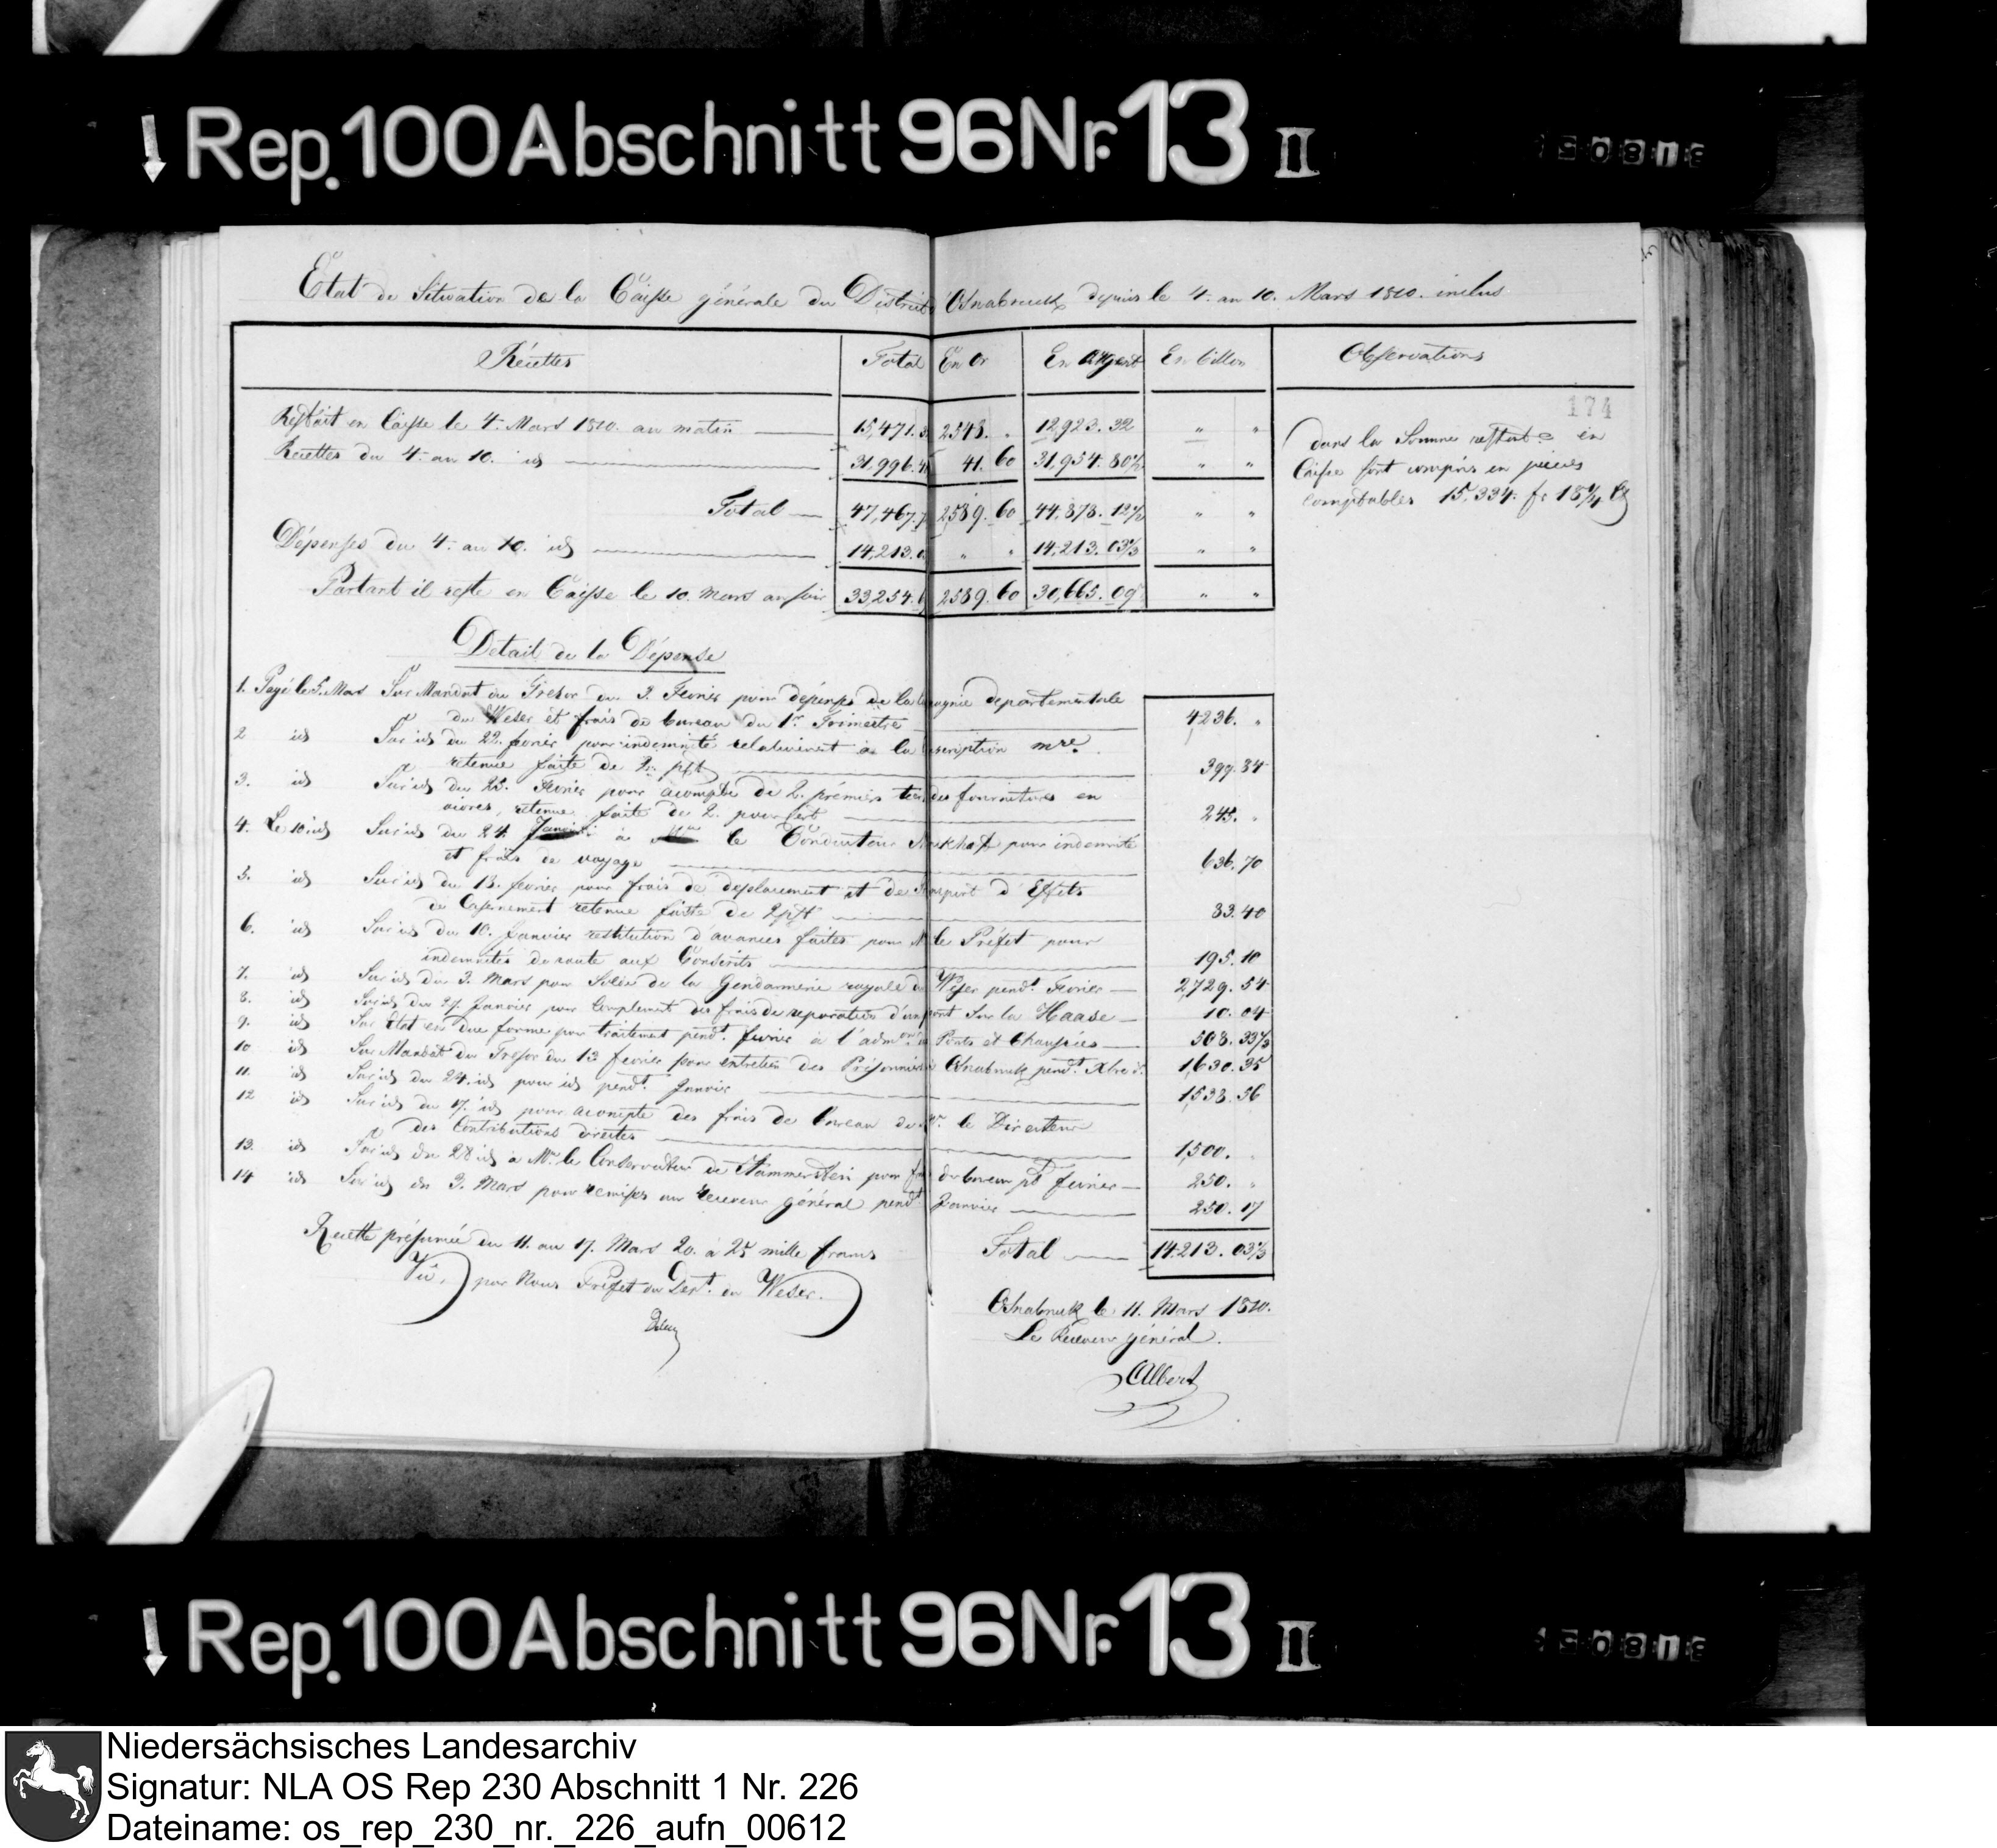 Rep. 100 Abschnitt 96 Nr. 13 II
174
Etat de Situation de la Caisse générale du District Osnabruck depuis le 4. au 10. Mars 1810. inclus
Récettes Total En or En argent En billon Observations
Restait en Caisse le 4. Mars 1810. au matin 15,471. 2548. " 12,923. 32 " "
Recettes du 4. au 10. id 31,996. 41. 60 31,954. 80 " "
Total 47,467. 2589. 60 44,878. 12 " "
Dépenses du 4. au 10. id 14,213. " " 14,213. 03 " "
Partant il reste en Caisse le 10. Mars au soir 33,254. 2589. 60 30,665. 09 " "
dans la Somme restante en
Caisse sont compris en pièces
comptables 15,334. fr 18
Detail de la Dépense
1. Payé le 5. Mars Sur Mandat du Trésor du 3. Fevrier pour dépenses de la Compagnie departementale
du Weser et frais de bureau du 1r. Trimestre 4,236. "
2 id Sur id du 22. fevrier pour indemnité relativement à la Conscription mre.
retenue faite de 399. 84
3. id Sur id du 25. Fevrier pour acompte de 2. prémiers tiers des fournitures en
vivres, retenue faite de 2. pour Cent 245. "
4. Le 10. id Sur id du 24. à le Conducteur pour indemnité
et frais de voyage 636. 70
5. id Sur id du 13. fevrier pour frais de deplacement et de Transport d'Effets
de Casernement retenue faite de 2 83. 40
6. id Sur id du 10. Janvier restitution d'avances faites pour M le Préfet pour
indemnités de route aux Conscrits 195. 10
7. id Sur id du 3. Mars pour Solde de la Gendarmerie royale du Weser pendt. Fevrier 2,729. 54
8. id Sur id du 27. Janvier pour Complement des frais de reparation d'un pont Sur la Haase 10. 04
9. id Sur Etat en due forme pour traitement pendt. fevrier à l'admon. des Ponts et Chaussées 508. 33
10 id Sur Mandat du Tresor du 13 fevrier pour entretien des Prisonniers à Osnabruck pendt. Xbre 1,630. 35
11. id Sur id du 24. id pour id pendt. Janvier 1,538. 56
12 id Sur id du 17. id pour acompte des frais de bureau de Mr. le Directeur
des Contributions directes 1,500. "
13. id Sur id du 28 id à Mr. le Conservateur de Hammerstein pour frais de bureau pt fevrier 250. "
14 id Sur id du 3. Mars pour remises au receveur général pendt Janvier 250. 17
Recette présumée du 11. au 17. Mars 20. à 25 mille francs
Total 14,213. 03
Vu, par Nous Préfet du Dept. du Weser.
Osnabruck le 11. Mars 1810.
Le Receveur général.
Albert
Rep. 100 Abschnitt 96 Nr. 13 II
Niedersächsisches Landesarchiv
Signatur: NLA OS Rep 230 Abschnitt 1 Nr. 226
Dateiname: os_rep_230_nr._226_aufn_00612